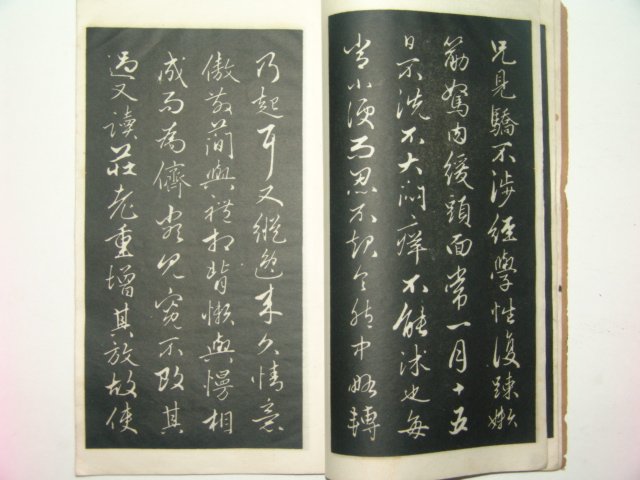 兄見驕不涉經學性復疎嬾
筋駑肉緩頭面常一月十五
日不洗不大悶癢不能沐也每
常小便而忍不起令胞中略轉
乃起耳又縱逸来久情意
傲散簡與禮相背懶與慢相
成而為儕類見寬不攻其
過又讀莊老重增其放故使